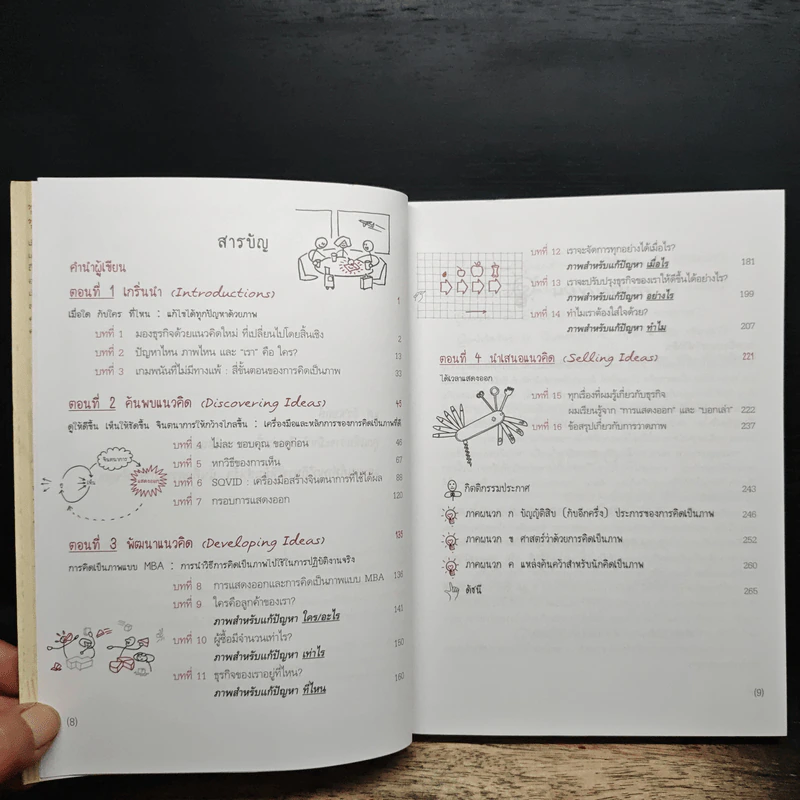 สารบัญ
คำนำผู้เขียน
ตอนที่ 1 เกริ่นนำ (Introductions) 1
เมื่อใด กับใคร ที่ไหน : แก้ไขได้ทุกปัญหาด้วยภาพ
บทที่ 1 มองธุรกิจด้วยแนวคิดใหม่ ที่เปลี่ยนไปโดยสิ้นเชิง 2
บทที่ 2 ปัญหาไหน ภาพไหน และ "เรา" คือ ใคร? 13
บทที่ 3 เกมพนันที่ไม่มีทางแพ้ : สี่ขั้นตอนของการคิดเป็นภาพ 33
ตอนที่ 2 ค้นพบแนวคิด (Discovering Ideas) 45
ดูให้ดีขึ้น เห็นให้ชัดขึ้น จินตนาการให้กว้างไกลขึ้น : เครื่องมือและหลักการของการคิดเป็นภาพที่ดี
จินตนาการ
แสดงออก
บทที่ 4 ไม่ละ ขอบคุณ ขอดูก่อน 46
บทที่ 5 หกวิธีของการเห็น 67
บทที่ 6 SQVID : เครื่องมือสร้างจินตนาการที่ใช้ได้ผล 88
บทที่ 7 กรอบการแสดงออก 120
ตอนที่ 3 พัฒนาแนวคิด (Developing Ideas) 135
การคิดเป็นภาพแบบ MBA : การนำวิธีการคิดเป็นภาพไปใช้ในการปฏิบัติงานจริง
บทที่ 8 การแสดงออกและการคิดเป็นภาพแบบ MBA 136
บทที่ 9 ใครคือลูกค้าของเรา?
ภาพสำหรับแก้ปัญหา ใคร/อะไร 141
บทที่ 10 ผู้ซื้อมีจำนวนเท่าไร?
ภาพสำหรับแก้ปัญหา เท่าไร 150
บทที่ 11 ธุรกิจของเราอยู่ที่ไหน?
ภาพสำหรับแก้ปัญหา ที่ไหน 160
(8)
บทที่ 12 เราจะจัดการทุกอย่างได้เมื่อไร?
ภาพสำหรับแก้ปัญหา เมื่อไร 181
บทที่ 13 เราจะปรับปรุงธุรกิจของเราให้ดีขึ้นได้อย่างไร?
ภาพสำหรับแก้ปัญหา อย่างไร 199
บทที่ 14 ทำไมเราต้องใส่ใจด้วย?
ภาพสำหรับแก้ปัญหา ทำไม 207
ตอนที่ 4 นำเสนอแนวคิด (Selling Ideas) 221
ได้เวลาแสดงออก
บทที่ 15 ทุกเรื่องที่ผมรู้เกี่ยวกับธุรกิจ
ผมเรียนรู้จาก "การแสดงออก" และ "บอกเล่า" 222
บทที่ 16 ข้อสรุปเกี่ยวกับการวาดภาพ 237
กิตติกรรมประกาศ 243
ภาคผนวก ก บัญญัติสิบ (กับอีกครึ่ง) ประการของการคิดเป็นภาพ 246
ภาคผนวก ข ศาสตร์ว่าด้วยการคิดเป็นภาพ 252
ภาคผนวก ค แหล่งค้นคว้าสำหรับนักคิดเป็นภาพ 260
ดัชนี 265
(9)